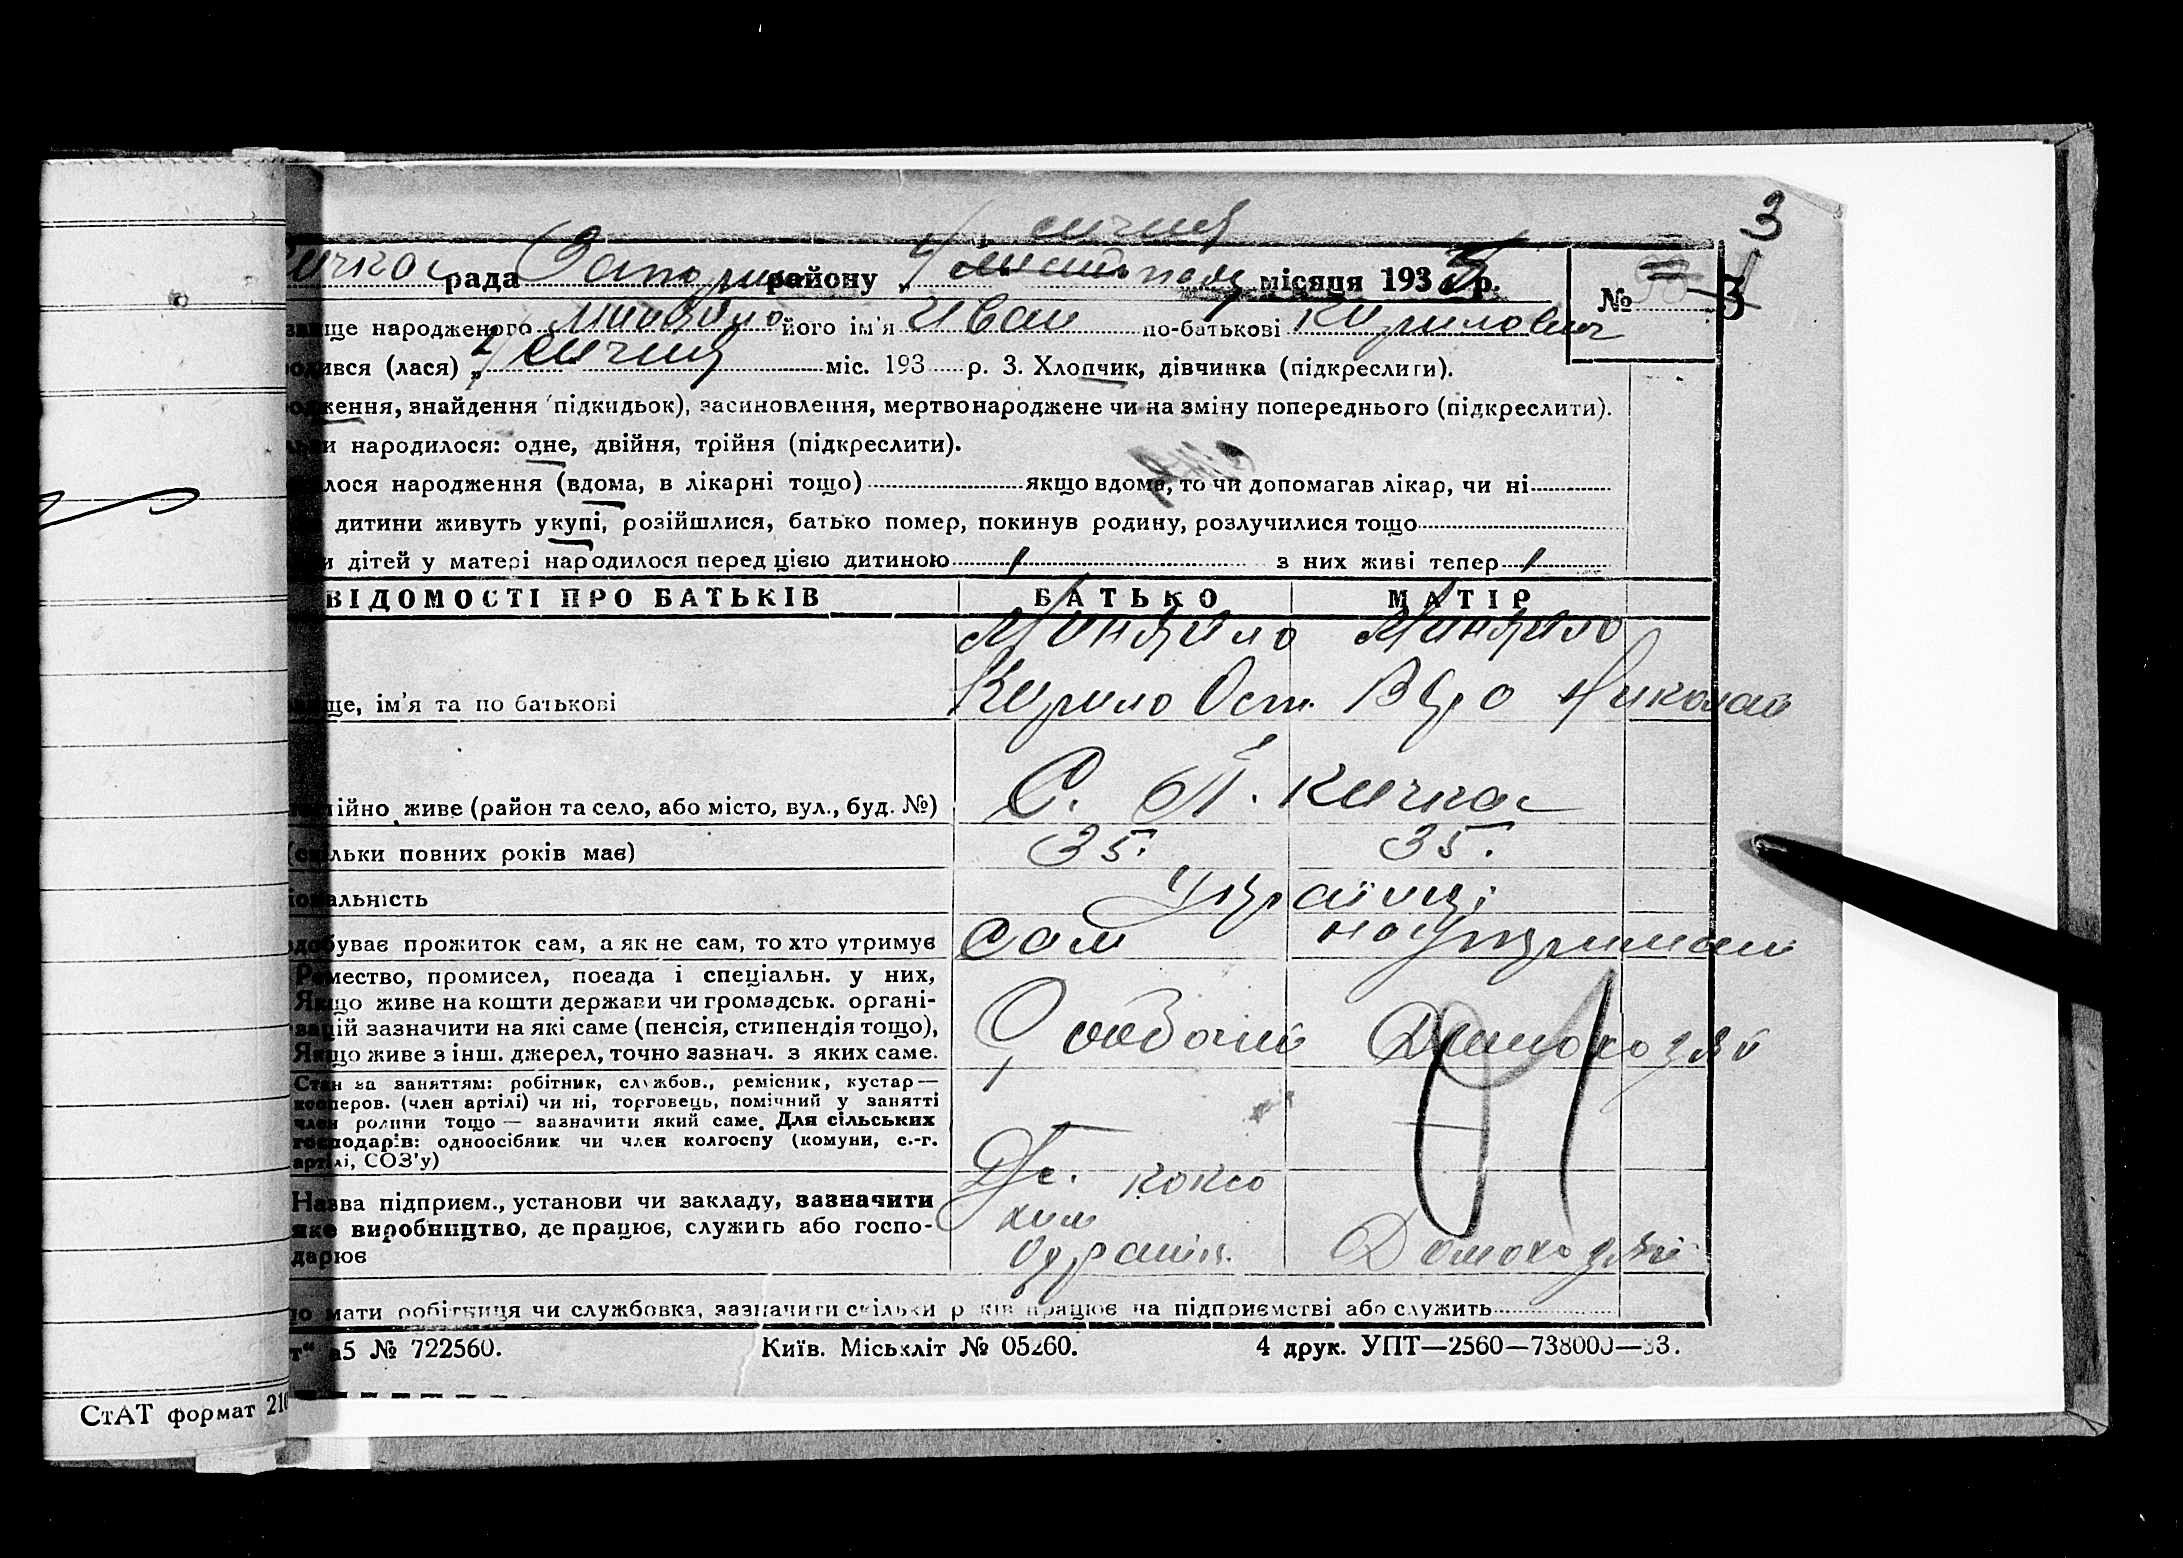 3
січня
Кичкас рада Запоріж району „4 листопад місяця 193 р. № 3
звище народженого Миндило його ім'я Иван по-батькові Кирилович
одився (лася) „ січня міс. 193 р. 3. Хлопчик, дівчинка (підкреслити).
одження, знайдення підкидьок), засиновлення, мертвонароджене чи на зміну попереднього (підкреслити).
льки народилося: одне, двійня, трійня (підкреслити).
лося народження (вдома, в лікарні тощо) якщо вдома, то чи допомагав лікар, чи ні
дитини живуть укупі, розійшлися, батько помер, покинув родину, розлучилися тощо
и дітей у матері народилося перед цією дитиною 1 з них живі тепер 1
ВІДОМОСТІ ПРО БАТЬКІВ БАТЬКО МАТІР
Миндило Миндило
ще, ім'я та по батькові Кирило Ост. Николаів
ійно живе (район та село, або місто, вул., буд. №) С. П. Кичкас
(скільки повних років має) 35. 35.
іональність Українці
здобуває прожиток сам, а як не сам, то хто утримує Сам на утриман
Ремество, промисел, посада і спеціальн. у них,
Якщо живе на кошти держави чи громадськ. органі-
зацій зазначити на які саме (пенсія, стипендія тощо),
Якщо живе з інш. джерел, точно зазнач. з яких саме.
Робочий Домохозяй
01
Стан за заняттям: робітник, службов., ремісник, кустар —
кооперов. (член артілі) чи ні, торговець, помічний у занятті
член родини тощо — зазначити який саме. Для сільських
господарів: одноосібник чи член колгоспу (комуни, с.-г.
артілі, СОЗ'у)
Назва підприєм., установи чи закладу, зазначити
яке виробництво, де працює, служить або госпо-
дарює
коксо
хим
Домохозяй
о мати робітниця чи службовка, зазначити скільки років працює на підприємстві або служить
т" а5 № 722560. Київ. Міськліт № 05260. 4 друк. УПТ—2560—738000—33.
СтАТ формат 210